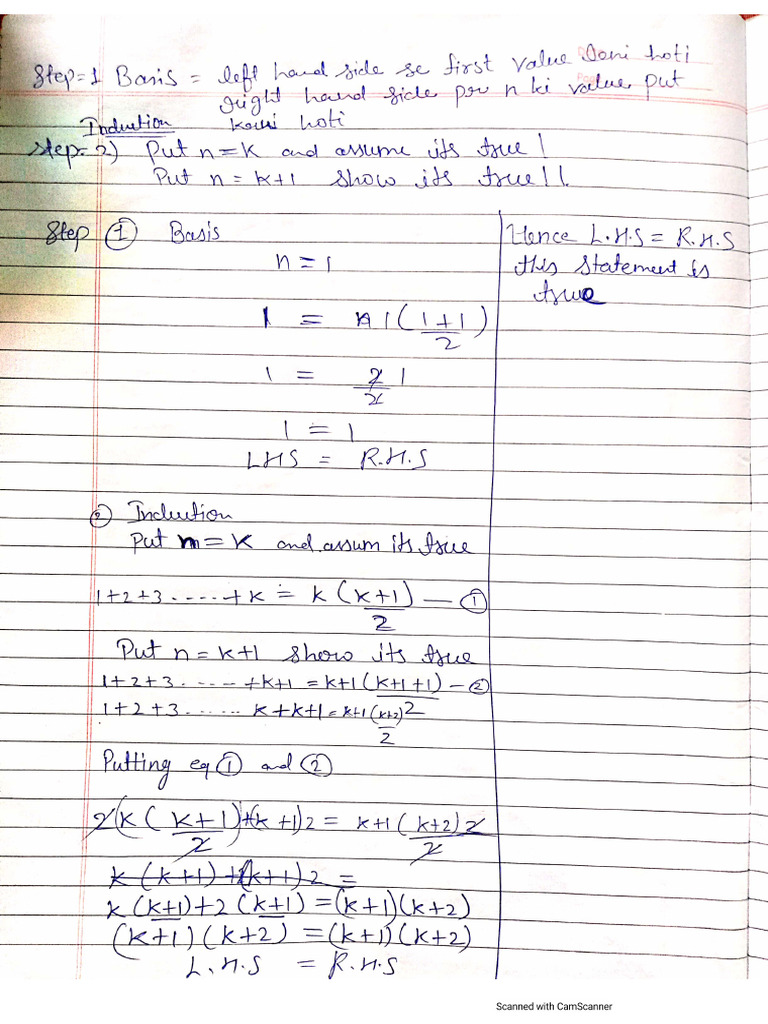 Step=1 Basis = left hand side se first value leni hoti
right hand side par n ki value put
karni hoti
Induction
Step=2) Put n=k and assume its true !
Put n=k+1 show its true !!
Step ① Basis
n=1
1 = 1(1+1)/2
1 = 2/2 1
1 = 1
LHS = R.H.S
Hence L.H.S = R.H.S
this statement is
true
② Induction
Put n=k and assum its true
1+2+3.....+k = k(k+1)/2 — ①
Put n=k+1 show its true
1+2+3.....+k+1 = k+1(k+1+1)/2 — ②
1+2+3......k+k+1 = k+1(k+2)/2
Putting eq ① and ②
2(k(k+1)/2)+(k+1)2 = k+1(k+2)2/2
k(k+1)+(k+1)2 =
k(k+1)+2(k+1) = (k+1)(k+2)
(k+1)(k+2) = (k+1)(k+2)
L.H.S = R.H.S
Scanned with CamScanner